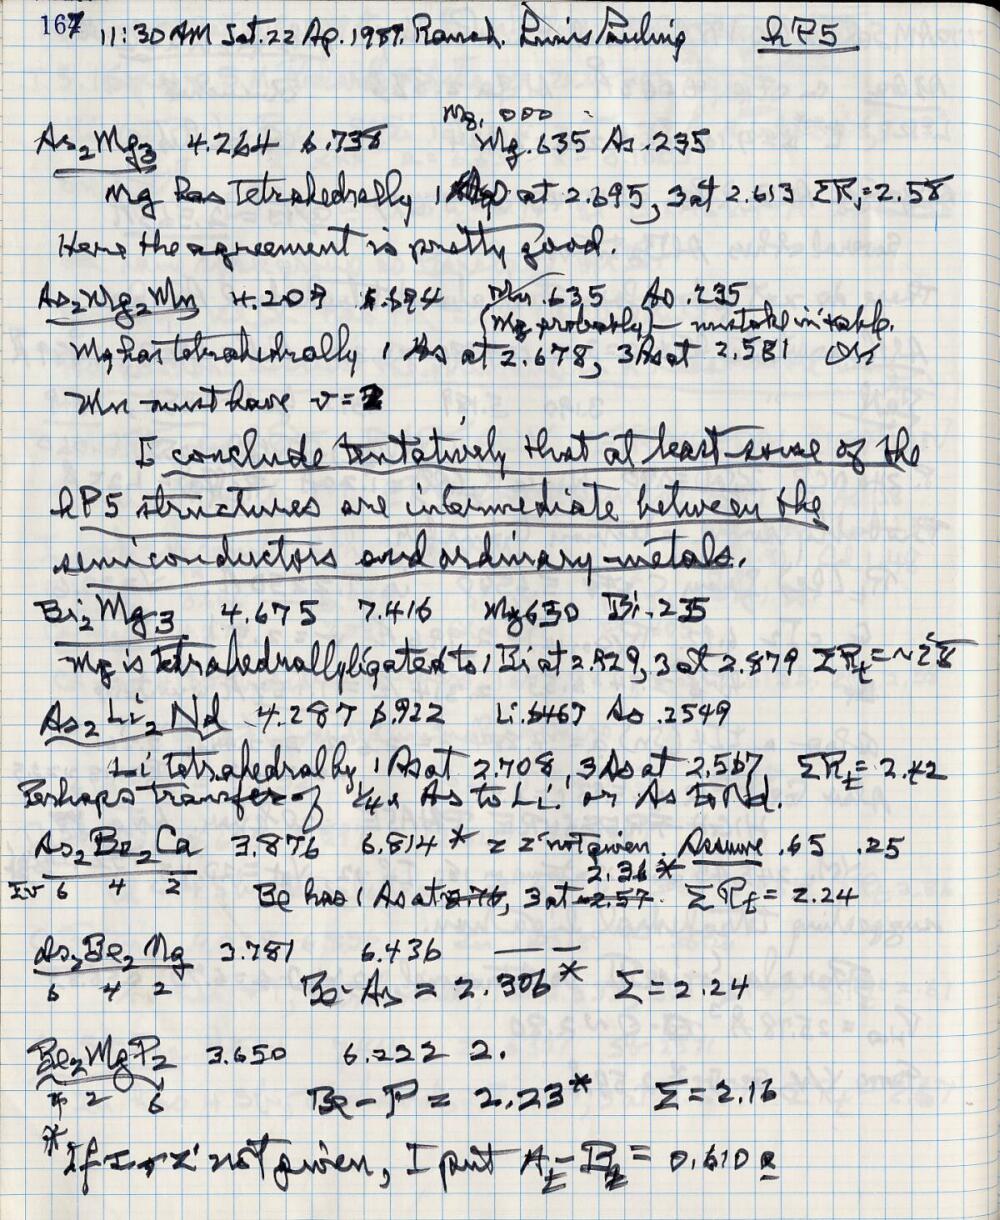 167 11:30 AM Sat. 22 Ap. 1989. Ranch. Linus Pauling hP5
Mg, 000
As2Mg3 4.264 6.738 Mg .635 As .235
Mg has tetrahedrally 1 at 2.695, 3 at 2.613 ΣR1=2.58
Here the agreement is pretty good.
As2Mg2Mn 4.209 6.694 Mn .635 As .235
(Mg probably) – mistake in table.
Mg has tetrahedrally 1 As at 2.678, 3 As at 2.581 OK
Mn must have v = 2
I conclude tentatively that at least some of the
hP5 structures are intermediate between the
semiconductors and ordinary metals.
Bi2Mg3 4.675 7.416 Mg 630 Bi .235
Mg is tetrahedrally ligated to 1 Bi at 2.929, 3 at 2.879 ΣRt = ~2.8
As2Li2Nd 4.287 6.922 Li .6467 As .2549
Li tetrahedrally 1 As at 2.708, 3 As at 2.567, ΣRt = 2.42
Perhaps transfer of As to Li or As to Nd.
As2Be2Ca 3.876 6.814 * z z' not given. Assume .65 .25
2.36*
6 4 2 Be has 1 As at 2.76, 3 at 2.57. ΣRt = 2.24
As2Be2Mg 3.781 6.436 — —
6 4 2 Be-As = 2.306* Σ = 2.24
Be2MgP2 3.650 6.222 2.
4 2 6 Be-P = 2.23* Σ = 2.16
*If z, z' not given, I put At-Bt = 0.610 a